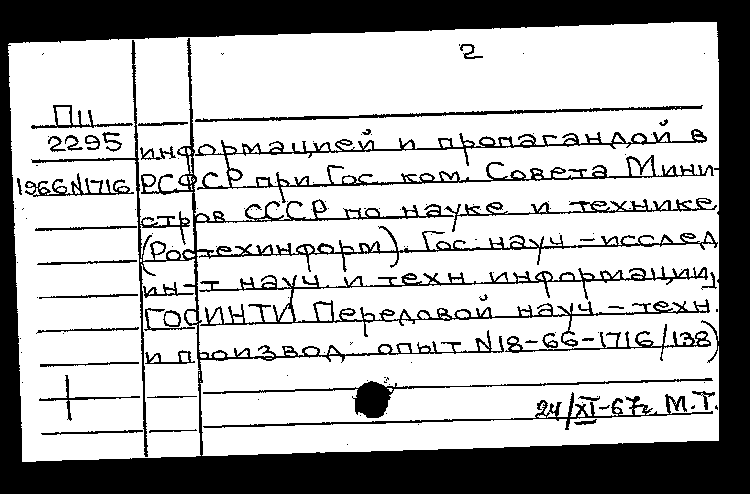 2
П11
2295 информацией и пропагандой в
1966N1716 РСФСР при Гос. ком. Совета Мини-
стров СССР по науке и технике
(Ростехинформ). Гос. науч-исслед
ин-т науч. и техн. информации,
ГОСИНТИ. Передовой науч-техн.
и производ. опыт N18-66-1716/138)
24/XI-67г. М.Т.